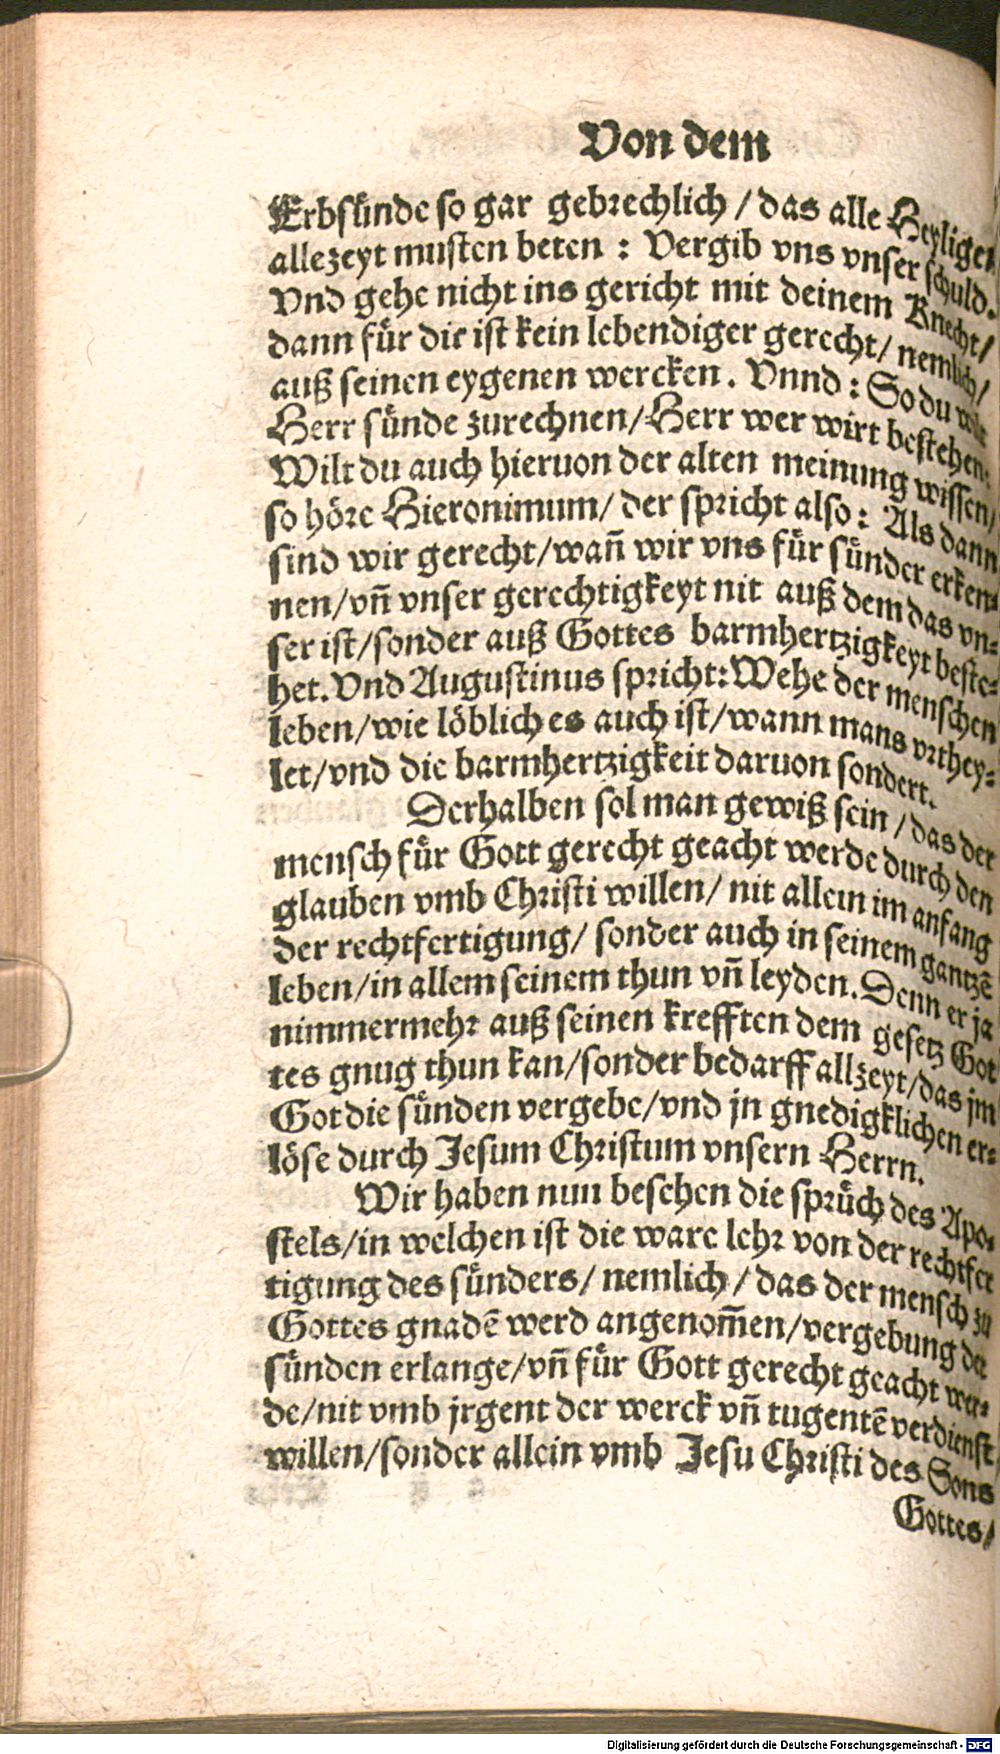 Von dem
Erbsünde so gar gebrechlich / das alle Heyligen
allezeyt musten beten : Vergib vns vnser schuld.
Vnd gehe nicht ins gericht mit deinem Knecht/
dann für dir ist kein lebendiger gerecht/ nemlich/
auß seinen eygenen wercken. Vnnd : So du wilt
Herr sünde zurechnen/Herr wer wirt bestehen:
Wilt du auch hieruon der alten meinung wissen/
so höre Hieronimum/ der spricht also : Als dann
sind wir gerecht/wañ wir vns für sünder erken-
nen/vñ vnser gerechtigkeyt nit auß dem das vn-
ser ist/sonder auß Gottes barmhertzigkeyt beste-
het. Vnd Augustinus spricht: Wehe der menschen
leben/wie löblich es auch ist/wann mans vrthey-
let/vnd die barmhertzigkeit daruon sondert.
Derhalben sol man gewiß sein / das der
mensch für Gott gerecht geacht werde durch den
glauben vmb Christi willen/ nit allein im anfang
der rechtfertigung/ sonder auch in seinem gantzē
leben/in allem seinem thun vñ leyden. Denn er ja
nimmermehr auß seinen krefften dem gesetz Got
tes gnug thun kan/sonder bedarff allzeyt/das jm
Got die sünden vergebe/vnd jn gnedigklichen er-
löse durch Jesum Christum vnsern Herrn.
Wir haben nun besehen die sprüch des Apo-
stels/in welchen ist die ware lehr von der rechtfer
tigung des sünders/ nemlich / das der mensch zu
Gottes gnadē werd angenom̄en/vergebung der
sünden erlange/vñ für Gott gerecht geacht wer-
de/nit vmb jrgent der werck vñ tugentē verdienst
willen/sonder allein vmb Jesu Christi des Sons
Gottes/
Digitalisierung gefördert durch die Deutsche Forschungsgemeinschaft - DFG